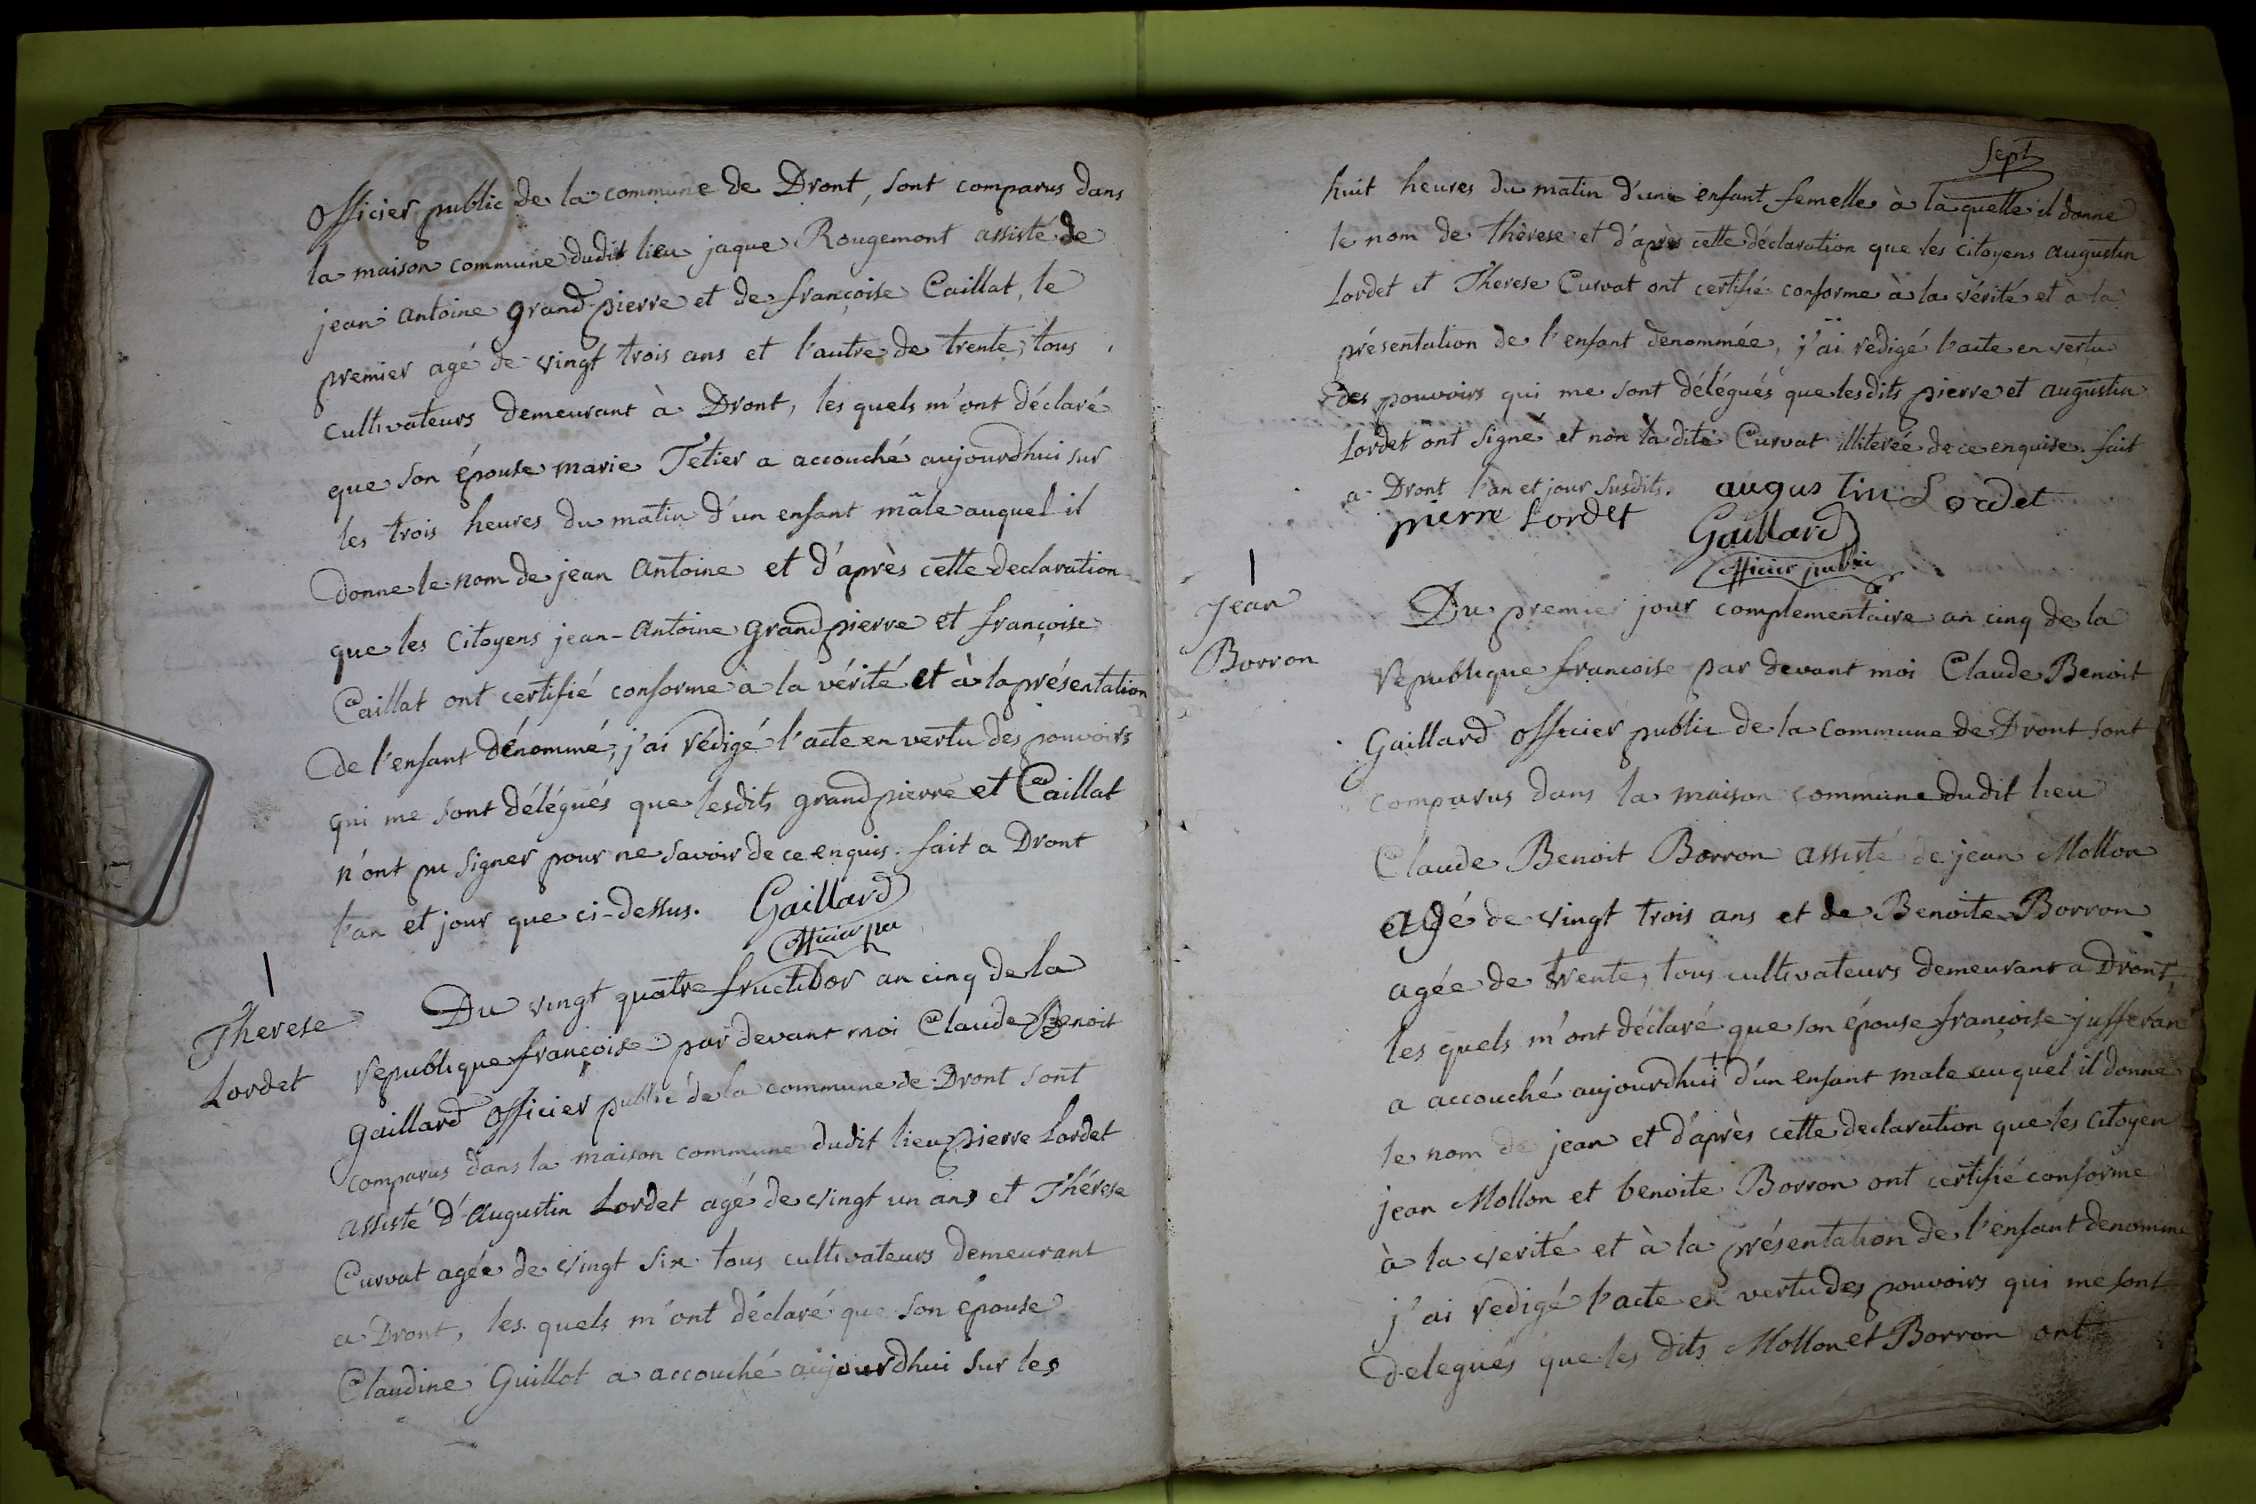 officier public de la commune de Dront, sont comparus dans
la maison commune dudit lieu jaque Rougemont assisté de
jean antoine grand-pierre et de françoise Caillat, le
premier agé de vingt trois ans et l'autre de trente, tous
cultivateurs demeurant à Dront, les quels m'ont déclaré
que son épouse marie Tetier a accouché aujourdhui sur
les trois heures du matin d'un enfant mâle auquel il
donne le nom de jean antoine et d'après cette declaration
que les citoyens jean-antoine grandpierre et françoise
Caillat ont certifié conforme à la vérité et à la présentation
de l'enfant dénommé, j'ai rédigé l'acte en vertu des pouvoirs
qui me sont délégués que lesdits grandpierre et Caillat
n'ont pu signer pour ne savoir de ce enquis. fait a Dront
l'an et jour que ci-dessus. Gaillard
officier pu
Therese
Lordet
Du vingt quatre fructidor an cinq de la
republique françoise par devant moi Claude Benoit
gaillard officier public de la commune de Dront sont
comparus dans la maison commune dudit lieu pierre Lordet
assisté d'Augustin Lordet agé de vingt un ans et Thérese
Curvat agée de vingt six tous cultivateurs demeurant
a Dront, les quels m'ont déclaré que son épouse
Claudine Guillot a accouché aujourdhui sur les
Sept
huit heures du matin d'une enfant femelle à laquelle il donne
le nom de thèrese et d'après cette déclaration que les citoyens augustin
Lordet et Therese Curvat ont certifié conforme à la vérité et à la
présentation de l'enfant denommée, j'ai redigé l'acte en vertu
des pouvoirs qui me sont délégués que lesdits pierre et augustin
Lordet ont signé et non la dite Curvat illiterée de ce enquise. fait
a Dront l'an et jour susdits. augustin Lordet
pierre Lordet Gaillard
officier public
Jean
Borron
Du premier jour complementaire an cinq de la
republique françoise par devant moi Claude Benoit
Gaillard officier public de la commune de Dront sont
comparus dans la maison commune dudit lieu
Claude Benoit Borron assisté de jean Mollon
agé de vingt trois ans et de Benoite Borron
agée de trente, tous cultivateurs demeurant a Dront,
les quels m'ont déclaré que son épouse françoise
a accouché aujourdhui d'un enfant male auquel il donne
le nom de jean et d'après cette declaration que les citoyen
jean Mollon et benoite Borron ont certifié conforme
à la verité et à la présentation de l'enfant denommé
j'ai redigé l'acte en vertu des pouvoirs qui me sont
delegués que les dits Mollon et Borron ont